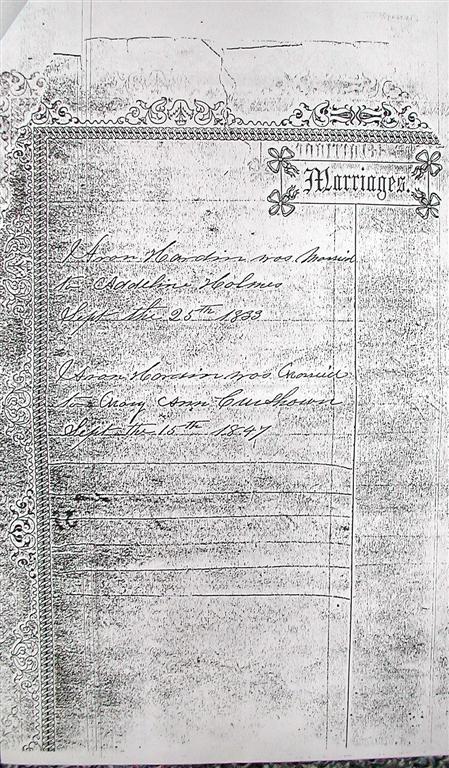 Marriages.
I Aron Hardin was Married
to Addeline Holmes
Sept the 25th 1833
I Aron Hardin was Married
to Mary Ann
Sept the 15th 1847